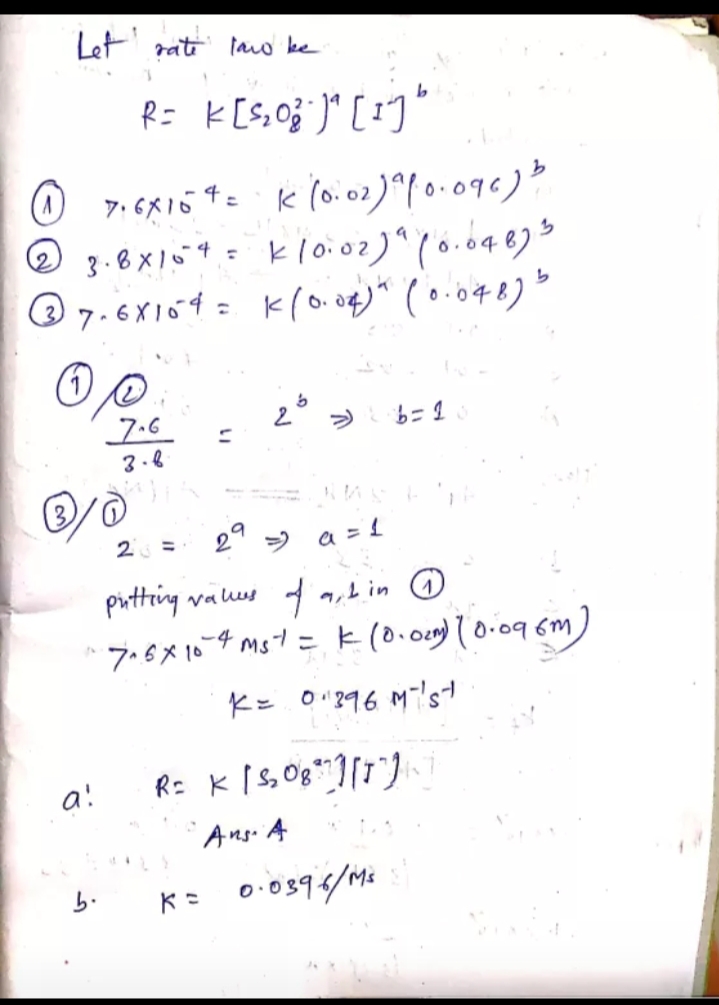 Let rate law be
R = K[S₂O₈²⁻]ᵃ [I⁻]ᵇ
① 7.6×10⁻⁴ = K (0.02)ᵃ (0.096)ᵇ
② 3.8×10⁻⁴ = K (0.02)ᵃ (0.048)ᵇ
③ 7.6×10⁻⁴ = K (0.04)ᵃ (0.048)ᵇ
①/②
7.6/3.8 = 2ᵇ ⇒ b=1
③/①
2 = 2ᵃ ⇒ a=1
putting values of a,b in ①
7.6×10⁻⁴ Ms⁻¹ = K (0.02M) (0.096M)
K = 0.396 M⁻¹s⁻¹
a: R = K [S₂O₈²⁻][I⁻]
Ans. A
b. K = 0.0396/Ms